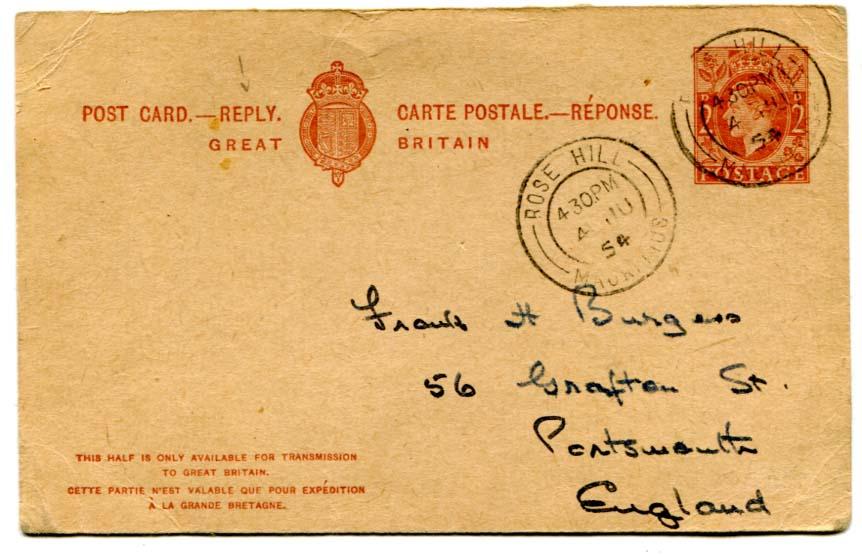 POST CARD.—REPLY.
CARTE POSTALE.—RÉPONSE.
GREAT BRITAIN
2 2
POSTAGE
HILL
430PM
54
ROSE HILL
430PM
4 JU
54
MAURITIUS
Frank H Burgess
56 Grafton St.
Portsmouth
England
THIS HALF IS ONLY AVAILABLE FOR TRANSMISSION
TO GREAT BRITAIN.
CETTE PARTIE N'EST VALABLE QUE POUR EXPÉDITION
A LA GRANDE BRETAGNE.